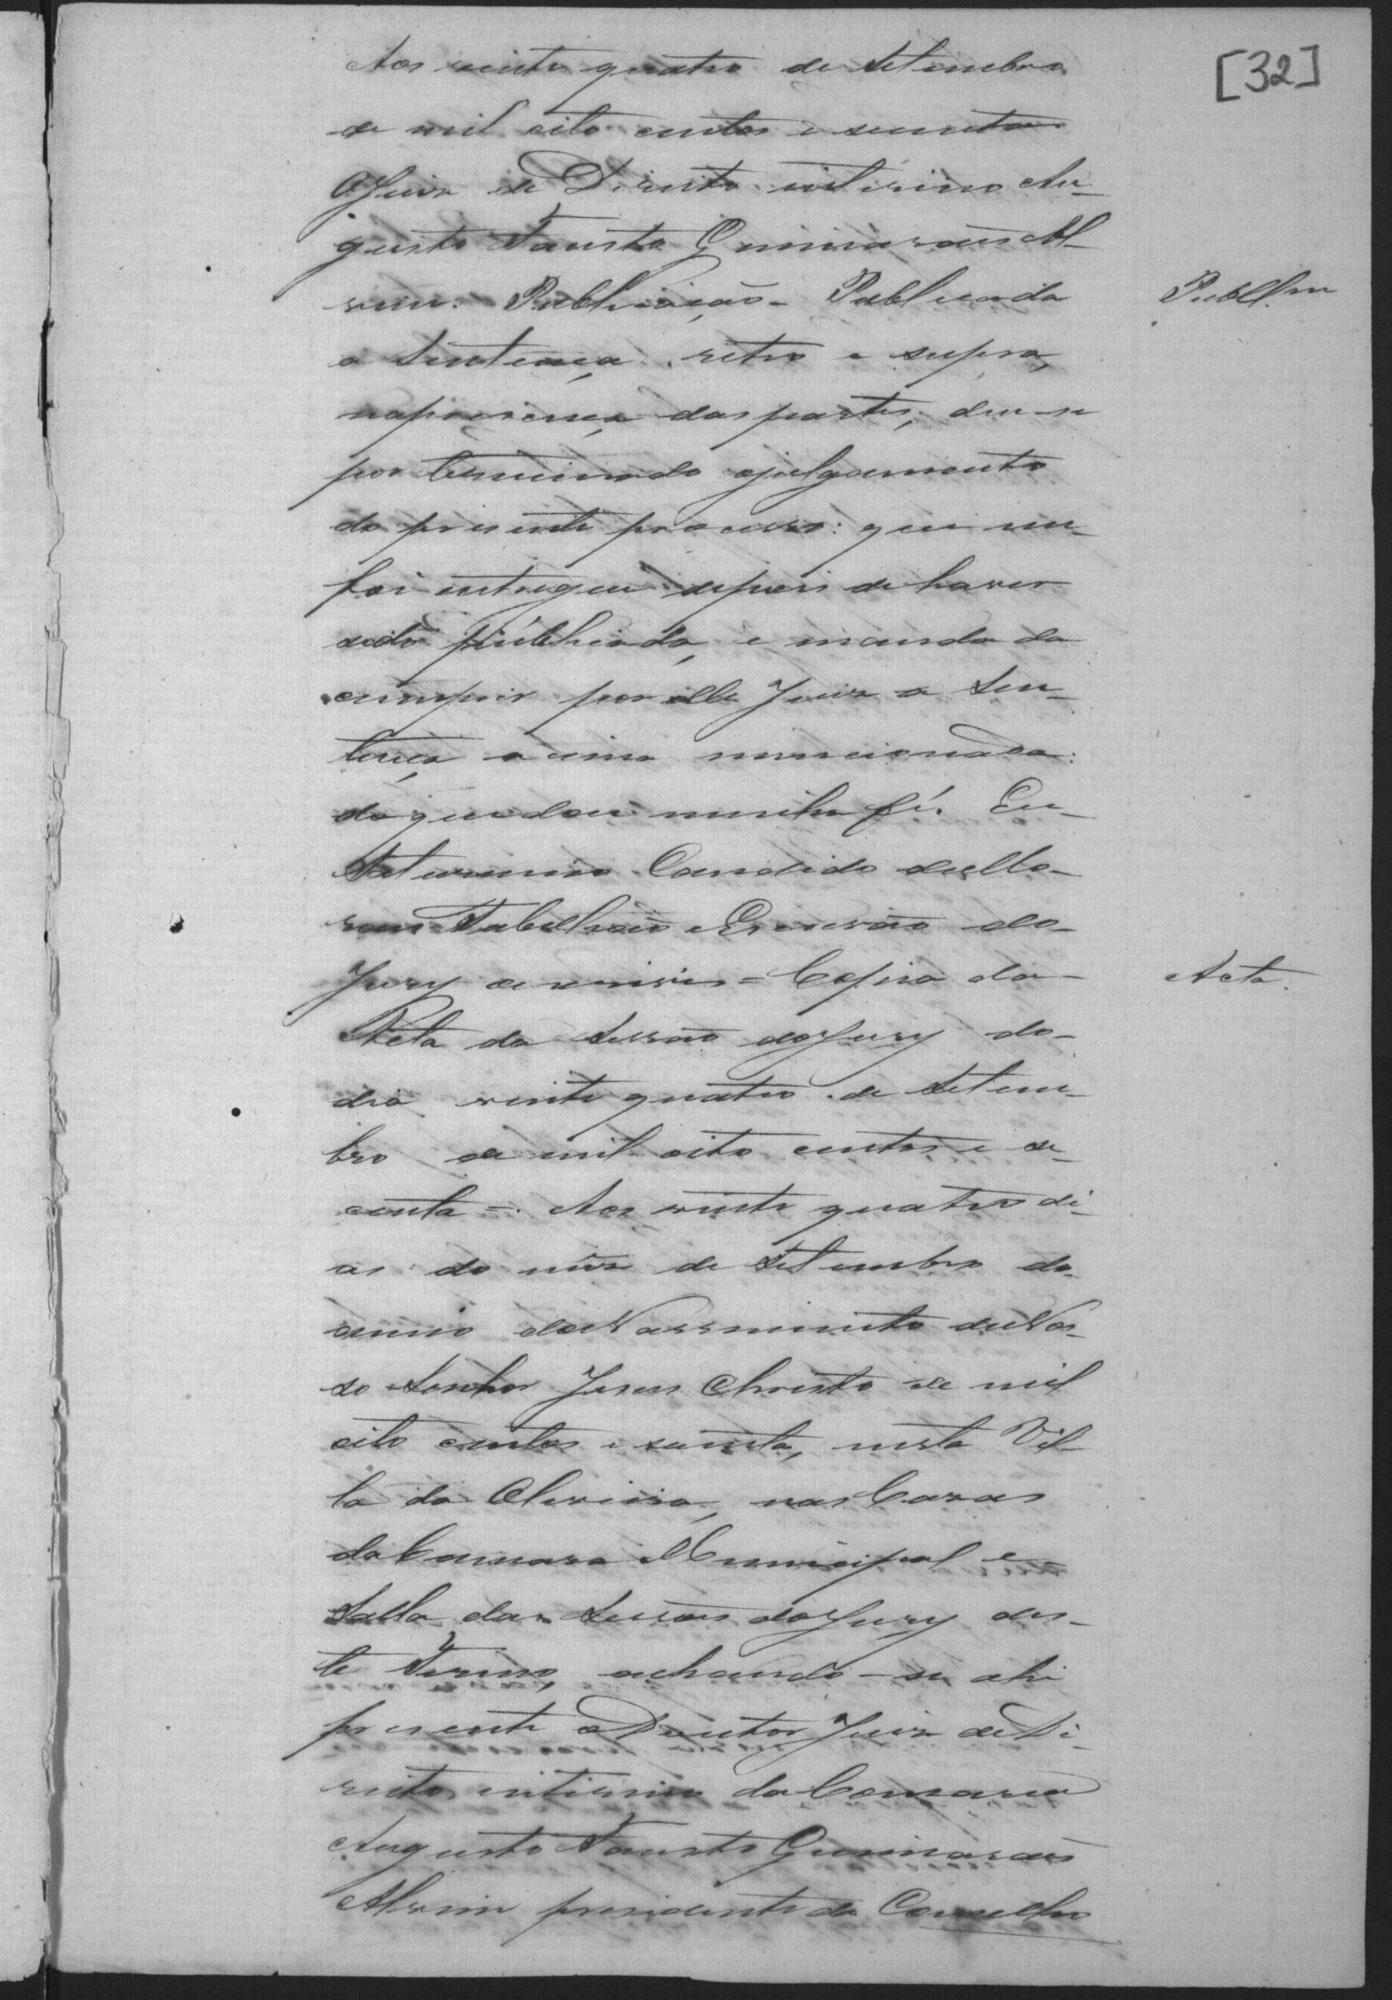 [32]
Aos vinte quatro de Setembro
de mil oito centos e secenta
O Juiz de Direito interino Au-
gusto Fausto Guimaraens Al-
vim. Publicação - Publicada
Publl.am
a Sentença retro e supra,
na presença das partes, deu-se
por terminado o julgamento
do presente processo: que me
foi entregue depois de haver
sido publicada, e mandada
cumprir por elle Juiz a Sen-
tença a cima mencionada:
do que dou minha fé. Eu
Saturnino Candido
Tabellião e Escrivão do
Jury escrevi = Copia da
Acta.
Acta da Sessão do Jury do
dia vinte quatro de Setem-
bro de mil oito centos e se-
centa =. Aos vinte quatro di-
as do mez de Setembro do
anno do Nascimento de Nos-
so Senhor Jesus Christo de mil
oito centos e secenta, nesta Vil-
la da Oliveira, nas Casas
da Camara Municipal e
Salla das Sessões do Jury des-
te Termo, achando-se ahi
presente o Doutor Juiz de Di-
reito interino da Comarca
Augusto Fausto Guimaraens
Alvim presidente do Conselho